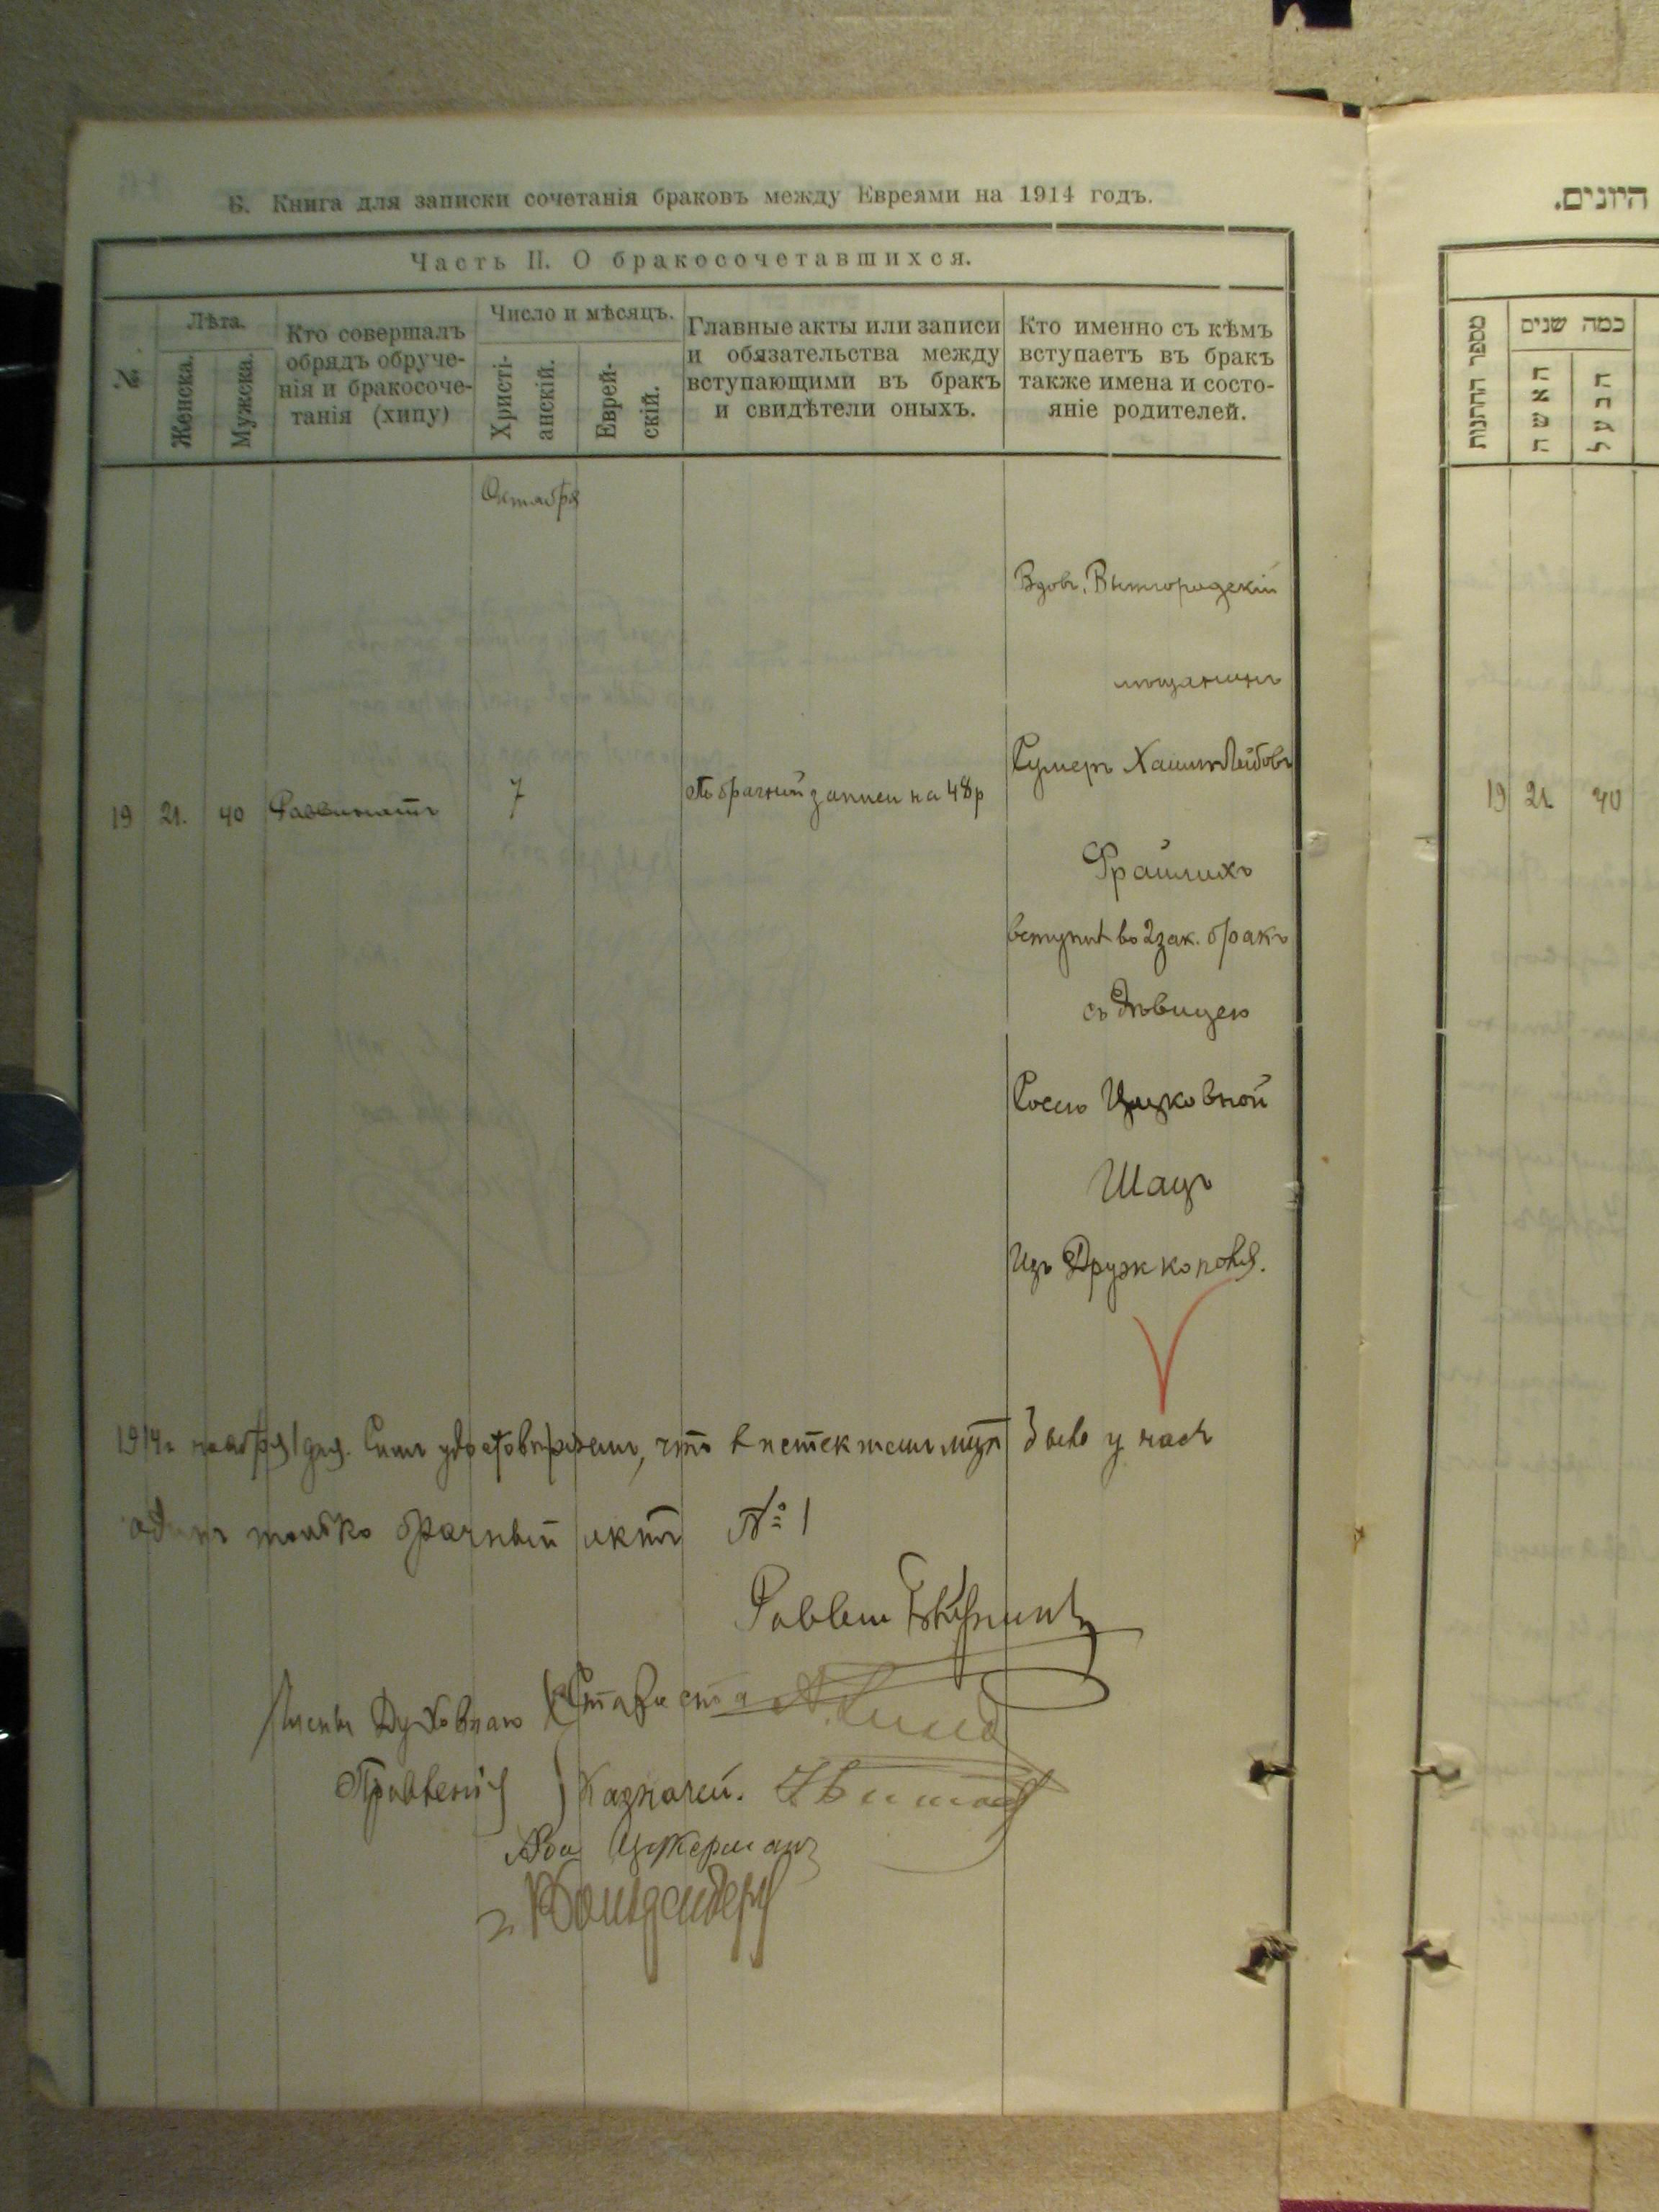 Б. Книга для записки сочетанія браковъ между Евреями на 1914 годъ.
Часть II. О бракосочетавшихся.
№
Лѣта.
Женска.
Мужска.
Кто совершалъ
обрядъ обруче-
нія и бракосоче-
танія (хипу)
Число и мѣсяцъ.
Христі-
анскій.
Еврей-
скій.
Главные акты или записи
и обязательства между
вступающими въ бракъ
и свидѣтели оныхъ.
Кто именно съ кѣмъ
вступаетъ въ бракъ
также имена и состо-
яніе родителей.
Октября
19 21. 40 Раввинатъ 7 По брачной записи на 48 р
Вдов. Вышгородскій
мѣщанинъ
Сумеръ Хаимъ Лейбовъ
Фрайлихъ
вступил во 2 зак. бракъ
съ дѣвицею
Сосею Ицковной
Шацъ
Изъ Дружкополя.
1914 г ноября 1 дня. Симъ удостовѣряемъ, что в истекшемъ м-цѣ было у насъ
одинъ только брачный актъ № 1
Раввин
Члены Духовнаго
Правленія
Староста
Казначей.
Цукерманъ
היונים.
מספר החתנות
כמה שנים
האשה
הבעל
19 21. 40